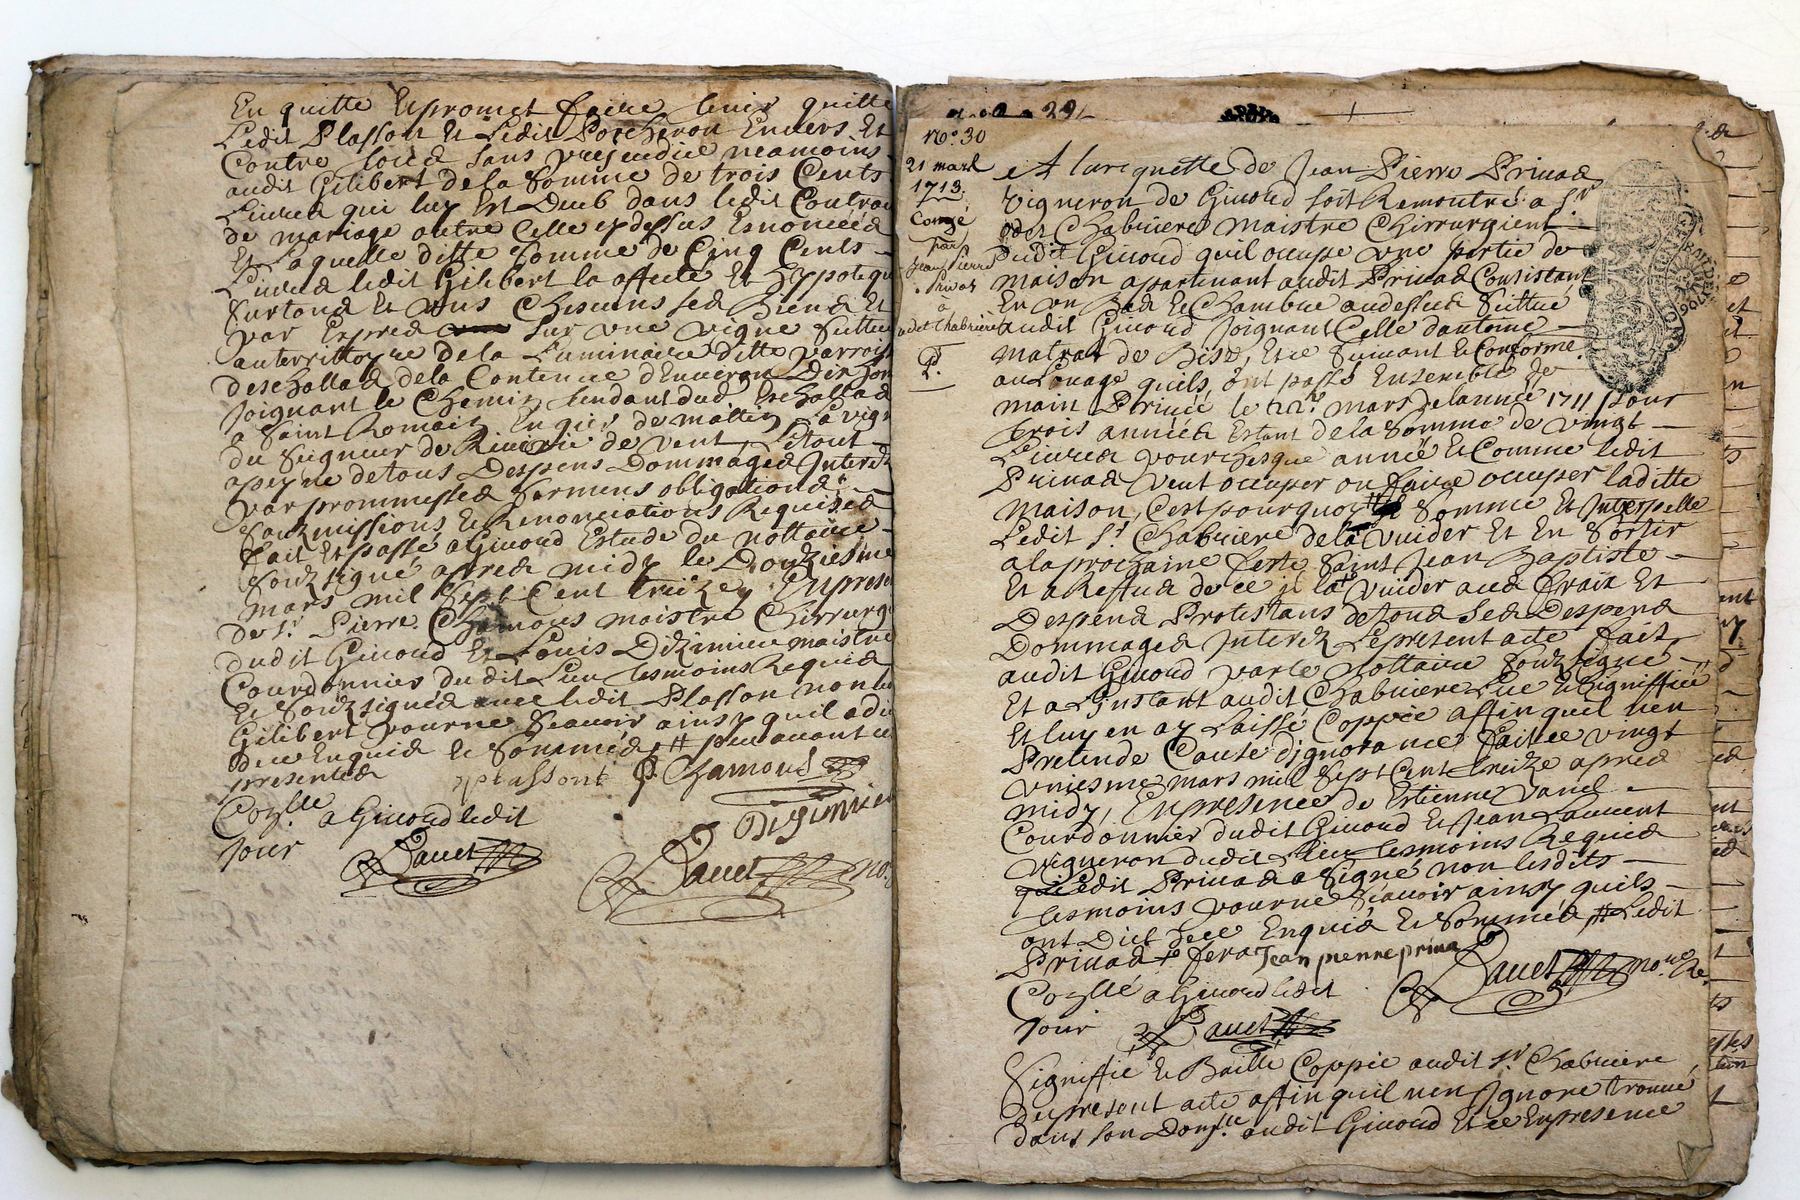 En quitte Et promet faire tenir quitte
Ledit Plasson Et Ledit Porcheron Envers Et
Contre tous sans prejudice neamoins
audit Gilibert de la Somme de trois Cents
Livres qui luy Est Deub dans ledit Contrat
de mariage outre Celle cy dessus Enoncéé
Et Laquelle ditte Somme de Cinq Cents
Livres ledit Gilibert la affecté Et hyppotequé
Sur tous Et uns Chescuns ses Biens Et
par Expres Sur une vigne Scittuée
au territtoyre de la Luminaire ditte
deschallas de la Contenue d'Environ Dix hom
Joignant le Chemin tendant dud Eschallas
a Saint Romain de mattin La vigne
du Seigneur de de vent Le tout
a peyne de tous Despens Dommages Interetz
par prommesses Sermens obligations
Soubzmissions Et Renonciations Requises
fait Et passé a Givord Estude du nottaire
Soubzsigné apres midy le Douziesme
mars mil Sept Cent treize, En presence
de Sr. Pierre Chamous maistre Chirurgien
dudit Givord Et Louis Dizimieu maistre
Courdonnier dudit Lieu tesmoins Requis
Et Soubzsignés avec ledit Plasson non led
Gilibert pour ne Scavoir ainsy quil a dit
Enquis Et Sommés #
presentes plassont P. Chamous
Dizimieu
Conlle a Givord ledit
Jour
Davet Davet no.
No. 30
21 mars
1713.
Congé
par
Jean pierre
Privas
a
odet Chabriere
A la requette de Jean Pierre Privas
vigneron de Givord soit Remontré a Sr
odet Chabriere maistre Chirrurgient
dudit Givord quil occupe une partie de
maison apartenant audit Privas Consistant
En un Bas Et Chambre audessus Scittué
audit Givord Joignant Celle dantoine
matrat de Bise, Et ce Suivant Et Conforme.
au Louage quils ont passé Ensemble de
main Privéé le mars de lannéé 1711 pour
trois annéés Estant de la Somme de vingt
Livres pour Chesque annéé Et Comme ledit
Privas veut occuper ou faire occuper laditte
maison, Cest pourquoy Somme Et Interpelle
Ledit Sr. Chabriere de la vuider Et En Sortir
a la prochaine feste Saint Jean Baptiste
Et a Reffus de ce il la vuider aus fraix Et
Despens Protestans de tous Ses Despens
Dommages Interetz Le present acte fait
audit Givord par le Nottaire Soubzsigné
Et a Linstant audit Chabriere Lue Et Signiffiéé
Et luy en ay Laissé Coppie affin quil nen
Pretende Cause dignorance fait ce vingt
uniesme mars mil Sept Cent treize apres
midy, En presence de Estienne vanel
Courdonnier dudit Givord Et Jean Laurent
Vigneron dudit Lieu tesmoins Requis
Ledit Privas a Signé non lesdits
tesmoins pour ne Scavoir ainsy quils
ont Dict Enquis Et Sommés # Ledit
Privas fera Jean pierre priva
Conllé a Givord ledit Davet
Jour Davet
Signiffié Et Baillé Coppie audit Sr Chabriere
du present acte affin quil nen Ignore trouvé
dans Son audit Givord Et ce En presence